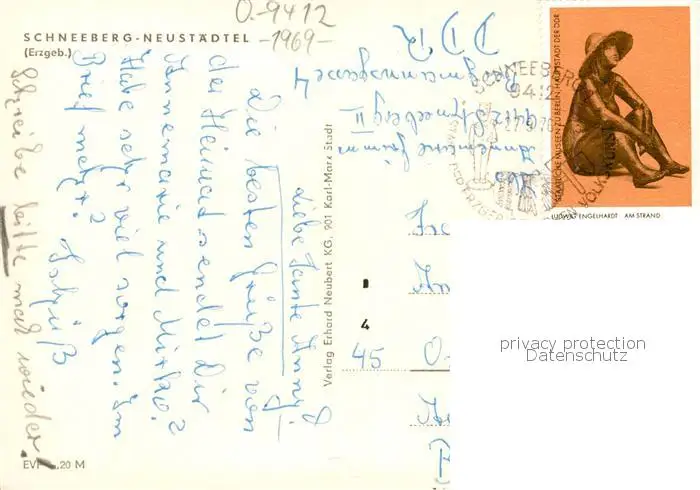 O.-9412
-1969-
SCHNEEBERG-NEUSTÄDTEL
(Erzgeb.)
Liebe Tante Anny!
Die besten Grüße von
der Heimat sendet Dir
Annemarie und Mirko?
Habe sehr viel sorgen. Im
Brief mehr?
Tschüß
Schreibe bitte mal wieder!
EVP 0,20 M
Verlag Erhard Neubert KG, 901 Karl-Marx Stadt
4
Annemarie
9412 Schneeberg II
4
DDR
45
SCHNEEBERG
9412
STAATLICHE MUSEEN ZU BERLIN, HAUPTSTADT DER DDR
LUDWIG ENGELHARDT AM STRAND
privacy protection
Datenschutz